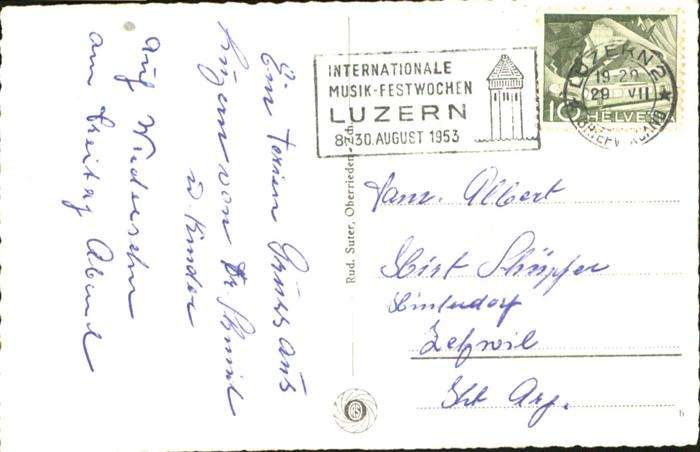 Ein Ferien Gruss aus
Luzern von Dr Schmid
u Kinder
Auf Wiedersehn
am Freitag Abend
Rud. Suter, Oberrieden-Zch.
INTERNATIONALE
MUSIK-FESTWOCHEN
LUZERN
8.-30. AUGUST 1953
LUZERN 2
19-20
29 VII
BRIEFVERSAND
10 HELVETIA
Fam. Albert
Hirt
Hinterdorf
Zetzwil
Kt Arg.